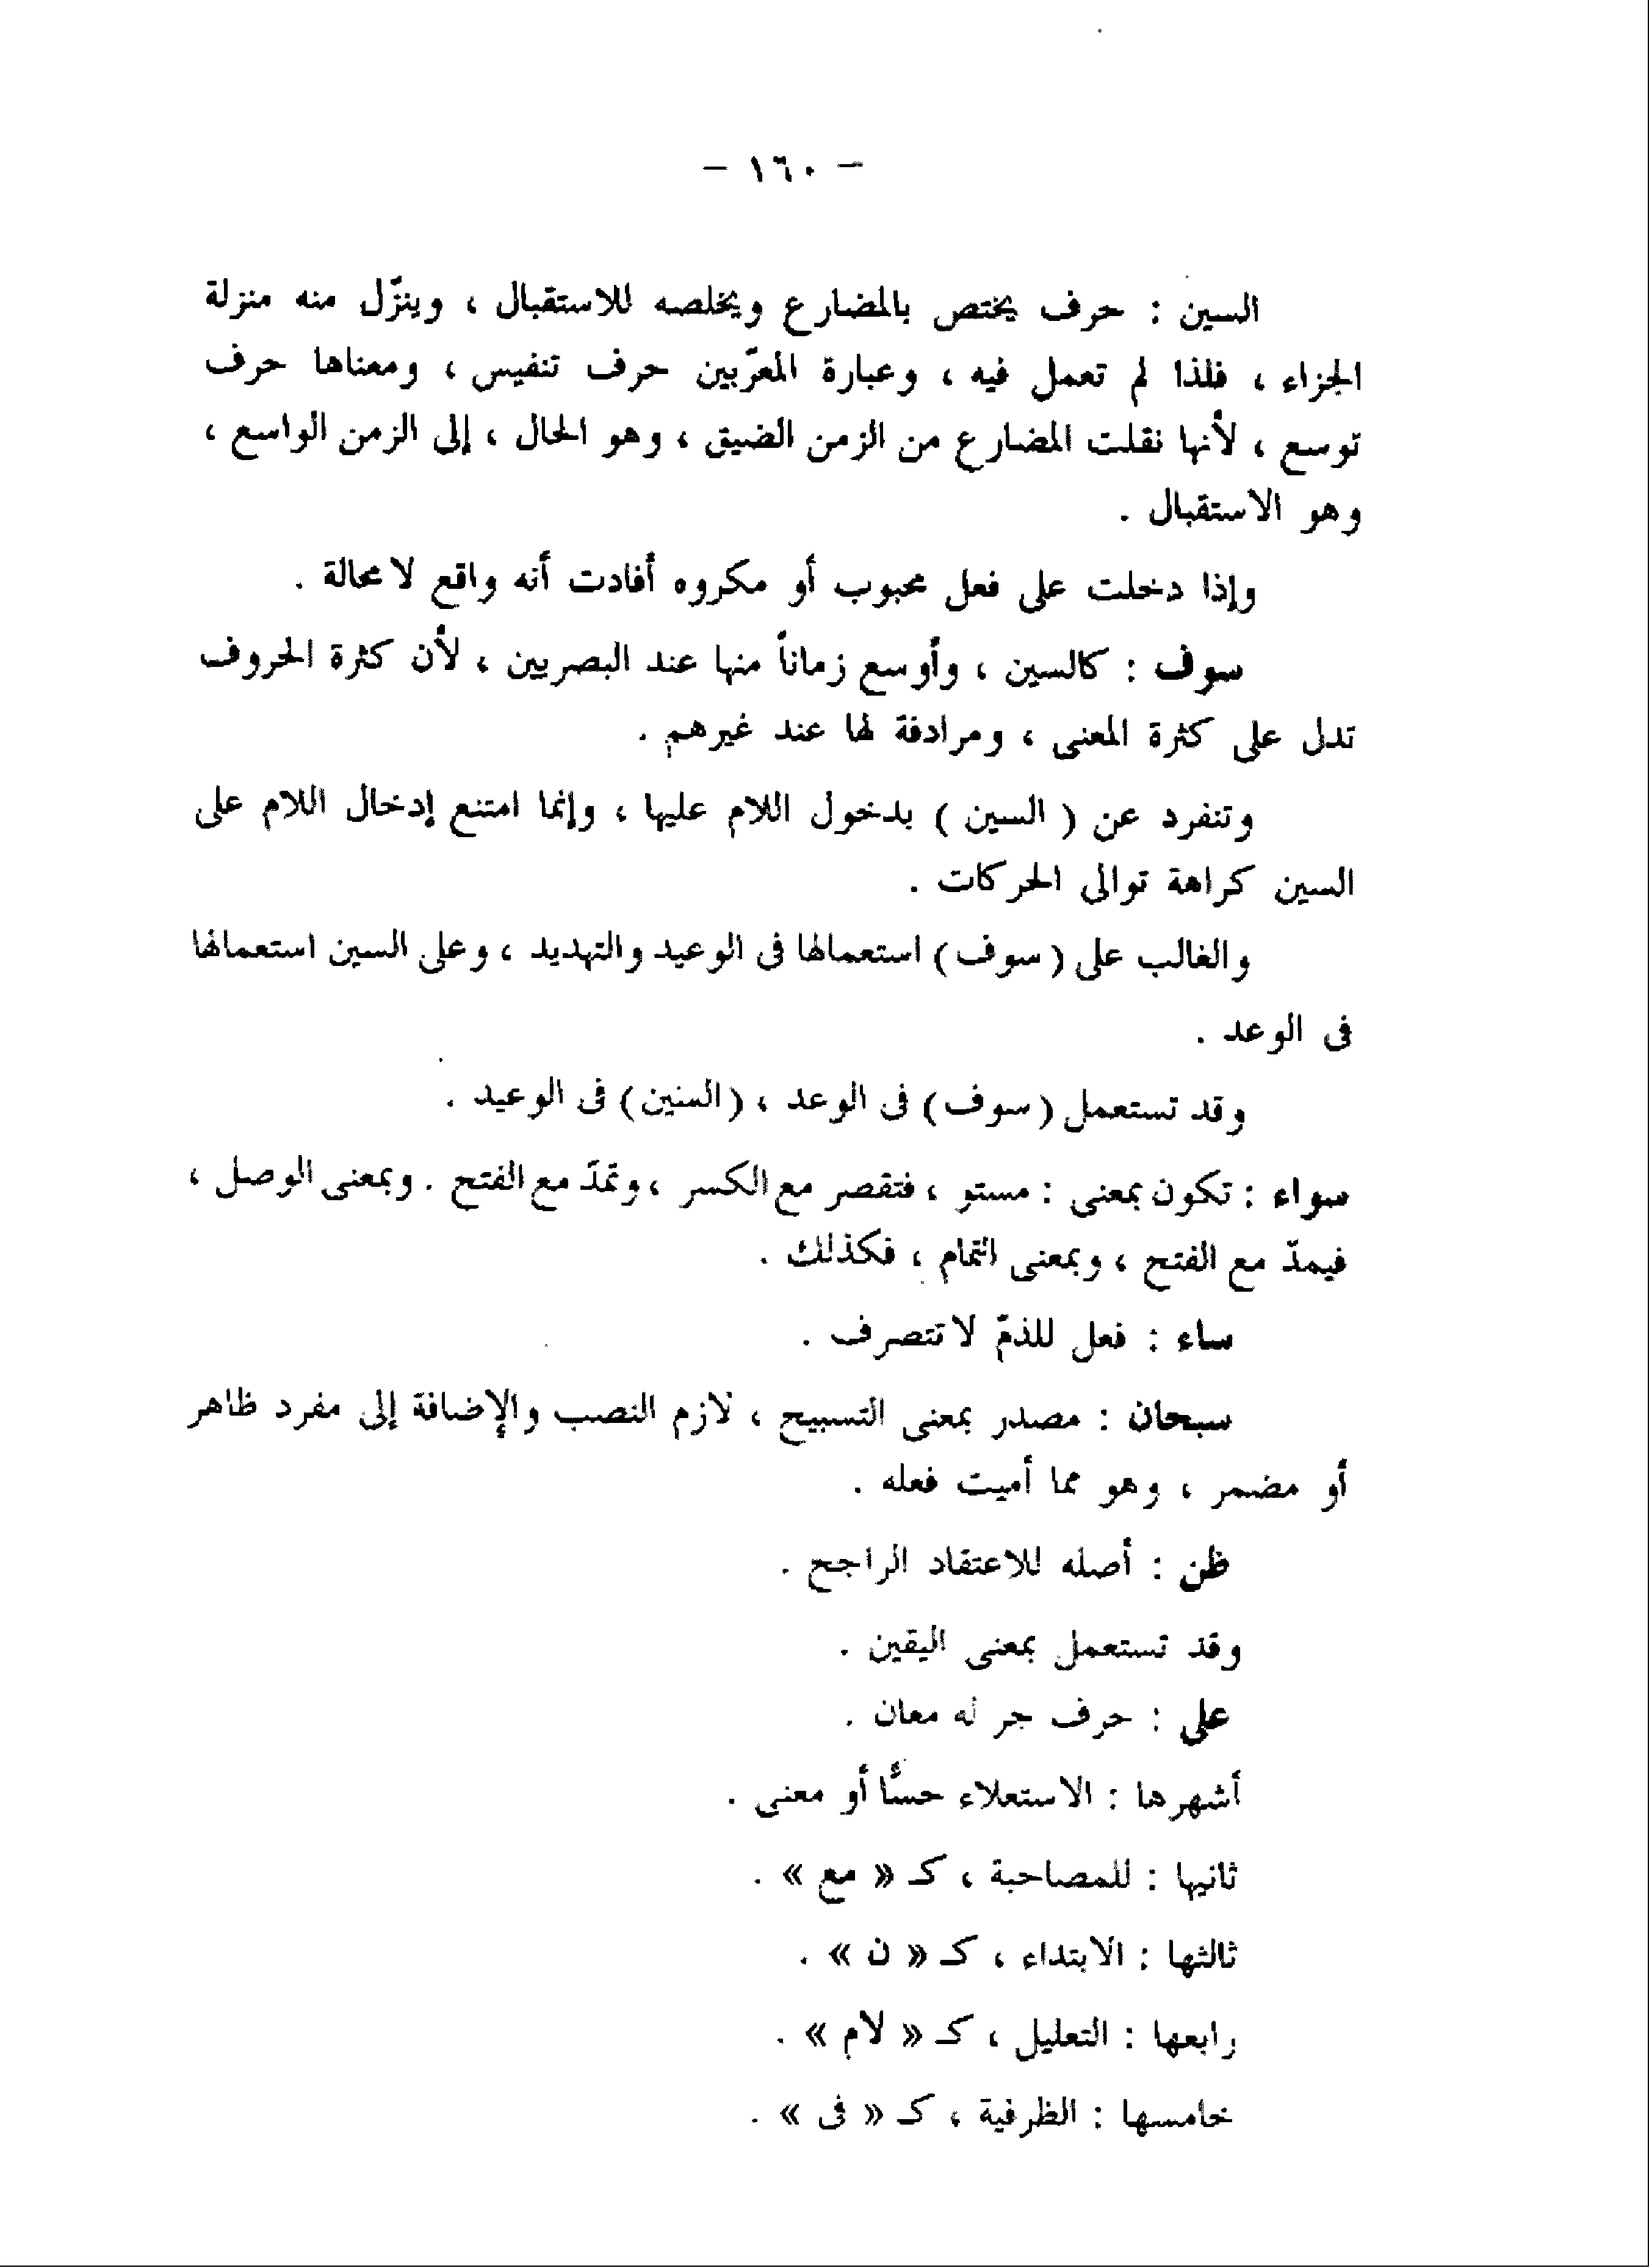 – ١٦٠ –
السين : حرف يختص بالمضارع ويخلصه للاستقبال ، وينزّل منه منزلة
الجزاء ، فلذا لم تعمل فيه ، وعبارة المعرّبين حرف تنفيس ، ومعناها حرف
توسع ، لأنها نقلت المضارع من الزمن الضيق ، وهو الحال ، إلى الزمن الواسع ،
وهو الاستقبال .
وإذا دخلت على فعل محبوب أو مكروه أفادت أنه واقع لا محالة .
سوف : كالسين ، وأوسع زماناً منها عند البصريين ، لأن كثرة الحروف
تدل على كثرة المعنى ، ومرادفة لها عند غيرهم .
وتنفرد عن ( السين ) بدخول اللام عليها ، وإنما امتنع إدخال اللام على
السين كراهة توالى الحركات .
والغالب على ( سوف ) استعمالها فى الوعيد والتهديد ، وعلى السين استعمالها
فى الوعد .
وقد تستعمل ( سوف ) فى الوعد ، ( السنين ) فى الوعيد .
سواء : تكون بمعنى : مستو ، فتقصر مع الكسر ، وتمدّ مع الفتح . وبمعنى الوصل ،
فيمدّ مع الفتح ، وبمعنى التمام ، فكذلك .
ساء : فعل للذمّ لا تتصرف .
سبحان : مصدر بمعنى التسبيح ، لازم النصب والإضافة إلى مفرد ظاهر
أو مضمر ، وهو مما أميت فعله .
ظن : أصله للاعتقاد الراجح .
وقد تستعمل بمعنى اليقين .
على : حرف جر له معان .
أشهرها : الاستعلاء حسًّا أو معنى .
ثانيها : للمصاحبة ، كـ « مع » .
ثالثها : الابتداء ، كـ « ن » .
رابعها : التعليل ، كـ « لام » .
خامسها : الظرفية ، كـ « فى » .